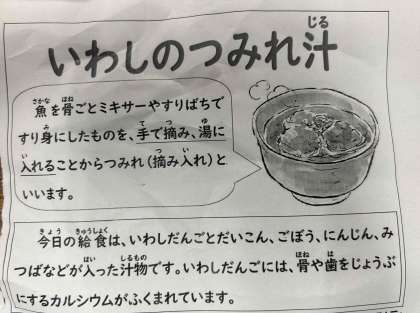 いわしのつみれ汁
魚を骨ごとミキサーやすりばちで
すり身にしたものを、手で摘み、湯に
入れることからつみれ（摘み入れ）と
いいます。
今日の給食は、いわしだんごとだいこん、ごぼう、にんじん、み
つばなどが入った汁物です。いわしだんごには、骨や歯をじょうぶ
にするカルシウムがふくまれています。